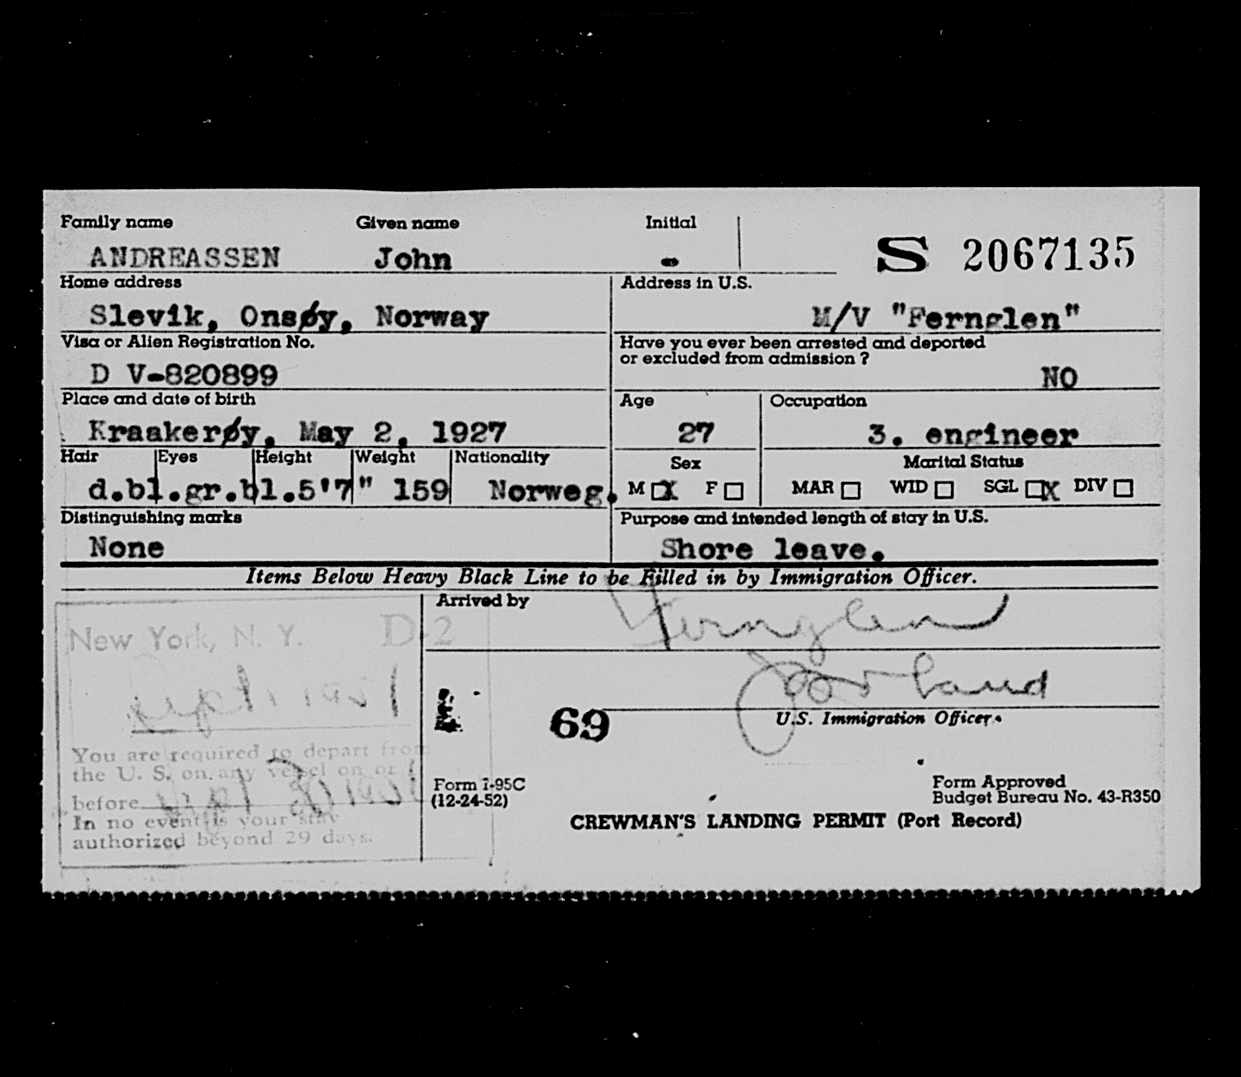 Family name Given name Initial
ANDREASSEN John - S 2067135
Home address Address in U.S.
Slevik, Onsøy, Norway M/V "Fernglen"
Visa or Alien Registration No. Have you ever been arrested and deported
or excluded from admission ?
D V-820899 NO
Place and date of birth Age Occupation
Kraakerøy, May 2, 1927 27 3. engineer
Hair Eyes Height Weight Nationality Sex Marital Status
d.bl.gr.bl.5'7" 159 Norweg. M X F MAR WID SGL X DIV
Distinguishing marks Purpose and intended length of stay in U.S.
None Shore leave.
Items Below Heavy Black Line to be Filled in by Immigration Officer.
Arrived by Fernglen
New York, N. Y. D-2
69
U.S. Immigration Officer.
You are required to depart from
the U. S. on any vessel on or
before
In no event is your stay
authorized beyond 29 days.
Form I-95C
(12-24-52)
Form Approved
Budget Bureau No. 43-R350
CREWMAN'S LANDING PERMIT (Port Record)